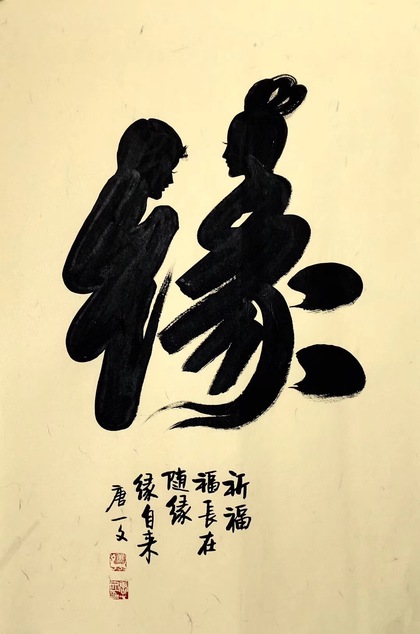 缘
祈福
福長在
随缘
缘自来
唐一文